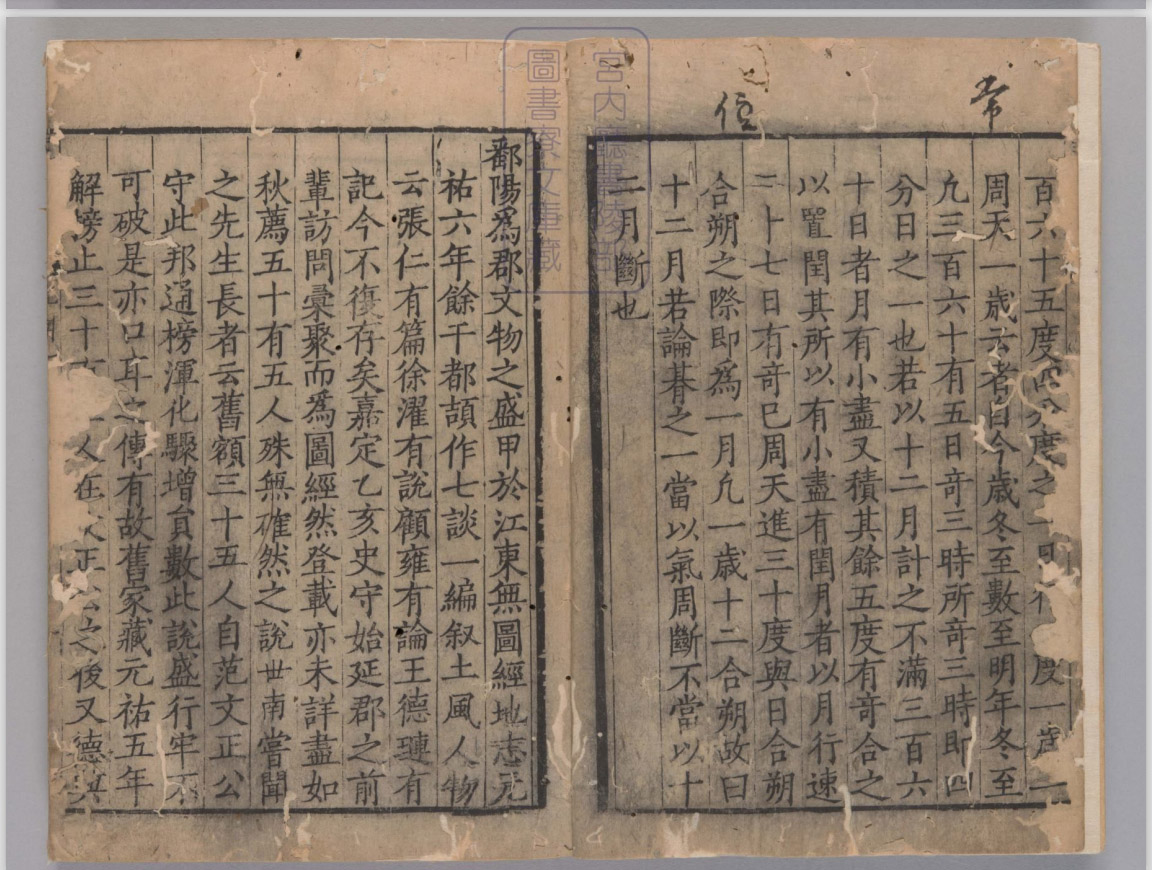 常
住
百六十五度四分度之一日行一度一歲一
周天一歲云者自今歲冬至數至明年冬至
凢三百六十有五日竒三時所竒三時即四
分日之一也若以十二月計之不滿三百六
十日者月有小盡又積其餘五度有竒合之
以置閏其所以有小盡有閏月者以月行速
二十七日有竒已周天進三十度與日合朔
合朔之際即爲一月凢一歲十二合朔故曰
十二月若論朞之一當以氣周斷不當以十
二月斷也
鄱陽爲郡文物之盛甲於江東無圖經地志元
祐六年餘干都頡作七談一編叙土風人物
云張仁有篇徐濯有說顧雍有論王德璉有
記今不復存矣嘉定乙亥史守始延郡之前
輩訪問彙聚而爲圖經然登載亦未詳盡如
秋薦五十有五人殊無確然之說世南嘗聞
之先生長者云舊額三十五人自范文正公
守此邦通榜渾化驟增負數此說盛行牢不
可破是亦口耳之傳有故舊家藏元祐五年
解牓止三十 人在 正公之後又德興
宮内廳書陵部
圖書寮文庫藏